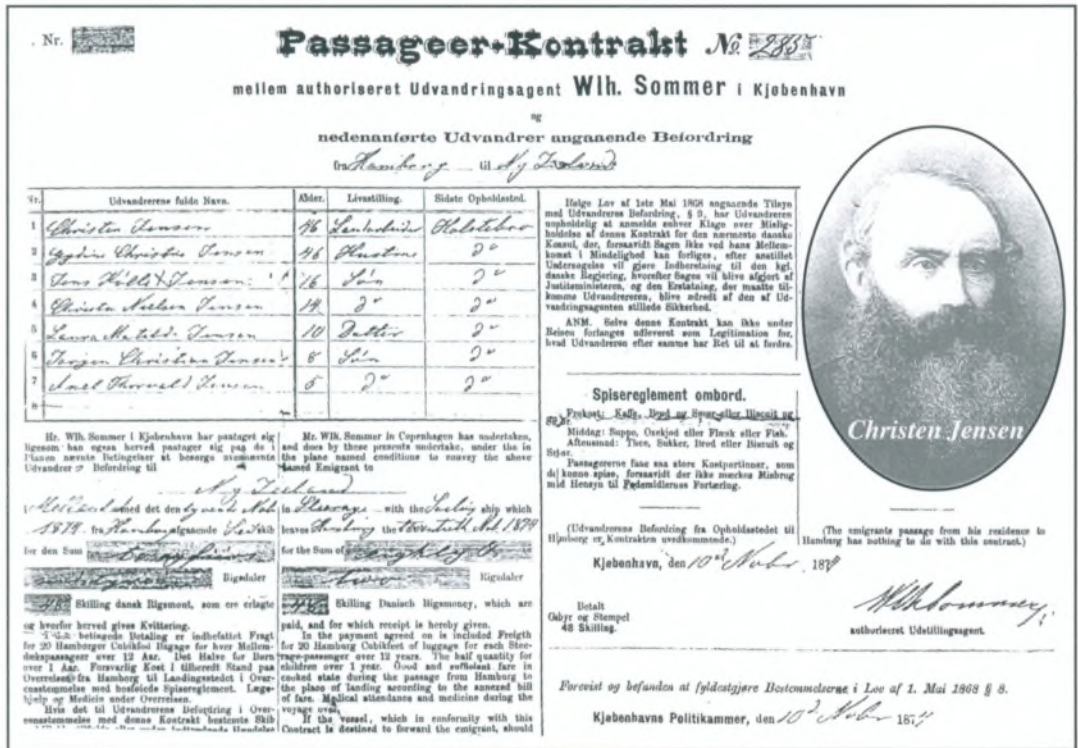 Nr.
Passageer-Kontrakt No. 285
mellem authoriseret Udvandringsagent Wlh. Sommer i Kjøbenhavn
og
nedenanførte Udvandrer angaaende Befordring
fra Hamborg til Ny Zeland
Nr. Udvandrerens fulde Navn. Alder. Livsstilling. Sidste Opholdssted.
1 Christen Jensen 46 Landarbeider Holstebro
2 Christine Jensen 46 Hustru Do
3 Jens Jensen 16 Søn Do
4 Christen Nielsen Jensen 14 Do Do
5 Laura Matilde Jensen 10 Datter Do
6 Jørgen Christian Jensen 8 Søn Do
7 Axel Thorvald Jensen 5 Do Do
8
Hr. Wlh. Sommer i Kjøbenhavn har paataget sig
ligesom han ogsaa herved paatager sig paa de i
Planen nævnte Betingelser at besørge ovennævnte
Udvandrer s Befordring til
Mr. Wlh. Sommer in Copenhagen has undertaken,
and does by these presents undertake, under the in
the plane named conditions to convey the above
named Emigrant to
Ny Zeeland
Mellemd med det den tyvende Nob.
1874 fra Hamborg afgaaende Skib
for den Sum
Rigsdaler
48 Skilling dansk Rigsmont, som ere erlagte
og hvorfor herved gives Kvittering.
I den betingede Betaling er indbefattet Fragt
for 20 Hamborger Cubikfod Bagage for hver Mellem-
dækspassageer over 12 Aar. Det Halve for Børn
over 1 Aar. Forsvarlig Kost i tilberedt Stand paa
Overreisen fra Hamborg til Landingsstedet i Over-
ensstemmelse med hosføiede Spisereglement. Læge-
hjelp og Medicin under Overreisen.
Hvis det til Udvandrerens Befordring i Over-
ensstemmelse med denne Kontrakt bestemte Skib
in Steerage with the Sailing ship which
leaves Hamburg the twentieth Nob. 1874
for the Sum of
two Rigsdaler
48 Skilling Danisch Rigsmoney, which are
paid, and for which receipt is hereby given.
In the payment agreed on is included Freigth
for 20 Hamburg Cubikfoet of luggage for each Stee-
rage-passenger over 12 years. The half quantity for
children over 1 year. Good and suffisient fare in
cooked state during the passage from Hamburg to
the place of landing according to the annexed bill
of fare. Medical attendance and medicine during the
voyage over.
If the vessel, which in conformity with this
Contract is destined to forward the emigrant, should
Ifølge Lov af 1ste Mai 1868 angaaende Tilsyn
med Udvandreres Befordring, § 9, har Udvandreren
uopholdelig at anmelde enhver Klage over Mislig-
holdelse af denne Kontrakt for den nærmeste danske
Konsul, der, forsaavidt Sagen ikke ved hans Mellem-
komst i Mindelighed kan forliges, efter anstillet
Undersøgelse vil gjøre Indberetning til den kgl.
danske Regjering, hvorefter Sagen vil blive afgjort af
Justitsministeren, og den Erstatning, der maatte til-
komme Udvandrereren, blive udredt af den af Ud-
vandringsagenten stillede Sikkerhed.
ANM. Selve denne Kontrakt kan ikke under
Reisen forlanges udleveret som Legitimation for,
hvad Udvandreren efter samme har Ret til at fordre.
Spisereglement ombord.
Frokost: Kaffe, Brød og Smør eller Biscuit og
Smør.
Middag: Suppe, Oxekjød eller Flæsk eller Fisk.
Aftensmad: Thee, Sukker, Brød eller Biscuit og
Smør.
Passagererne faae saa store Kostportioner, som
de kunne spise, forsaavidt der ikke mærkes Misbrug
mid Hensyn til Fødemidlernes Fortæring.
(Udvandrerens Befordring fra Opholdsstedet til
Hamborg er Kontrakten uvedkommende.)
(The emigrants passage from his residence to
Hamburg has nothing to do with this contract.)
Kjøbenhavn, den 10d Nobr. 1874
Betalt
Gebyr og Stempel
48 Skilling.
Wlh Sommer
authoriseret Udstillingsagent.
Forevist og befunden at fyldestgjøre Bestemmelserne i Lov af 1. Mai 1868 § 8.
Kjøbenhavns Politikammer, den 10d Nobr 1874
Christen Jensen